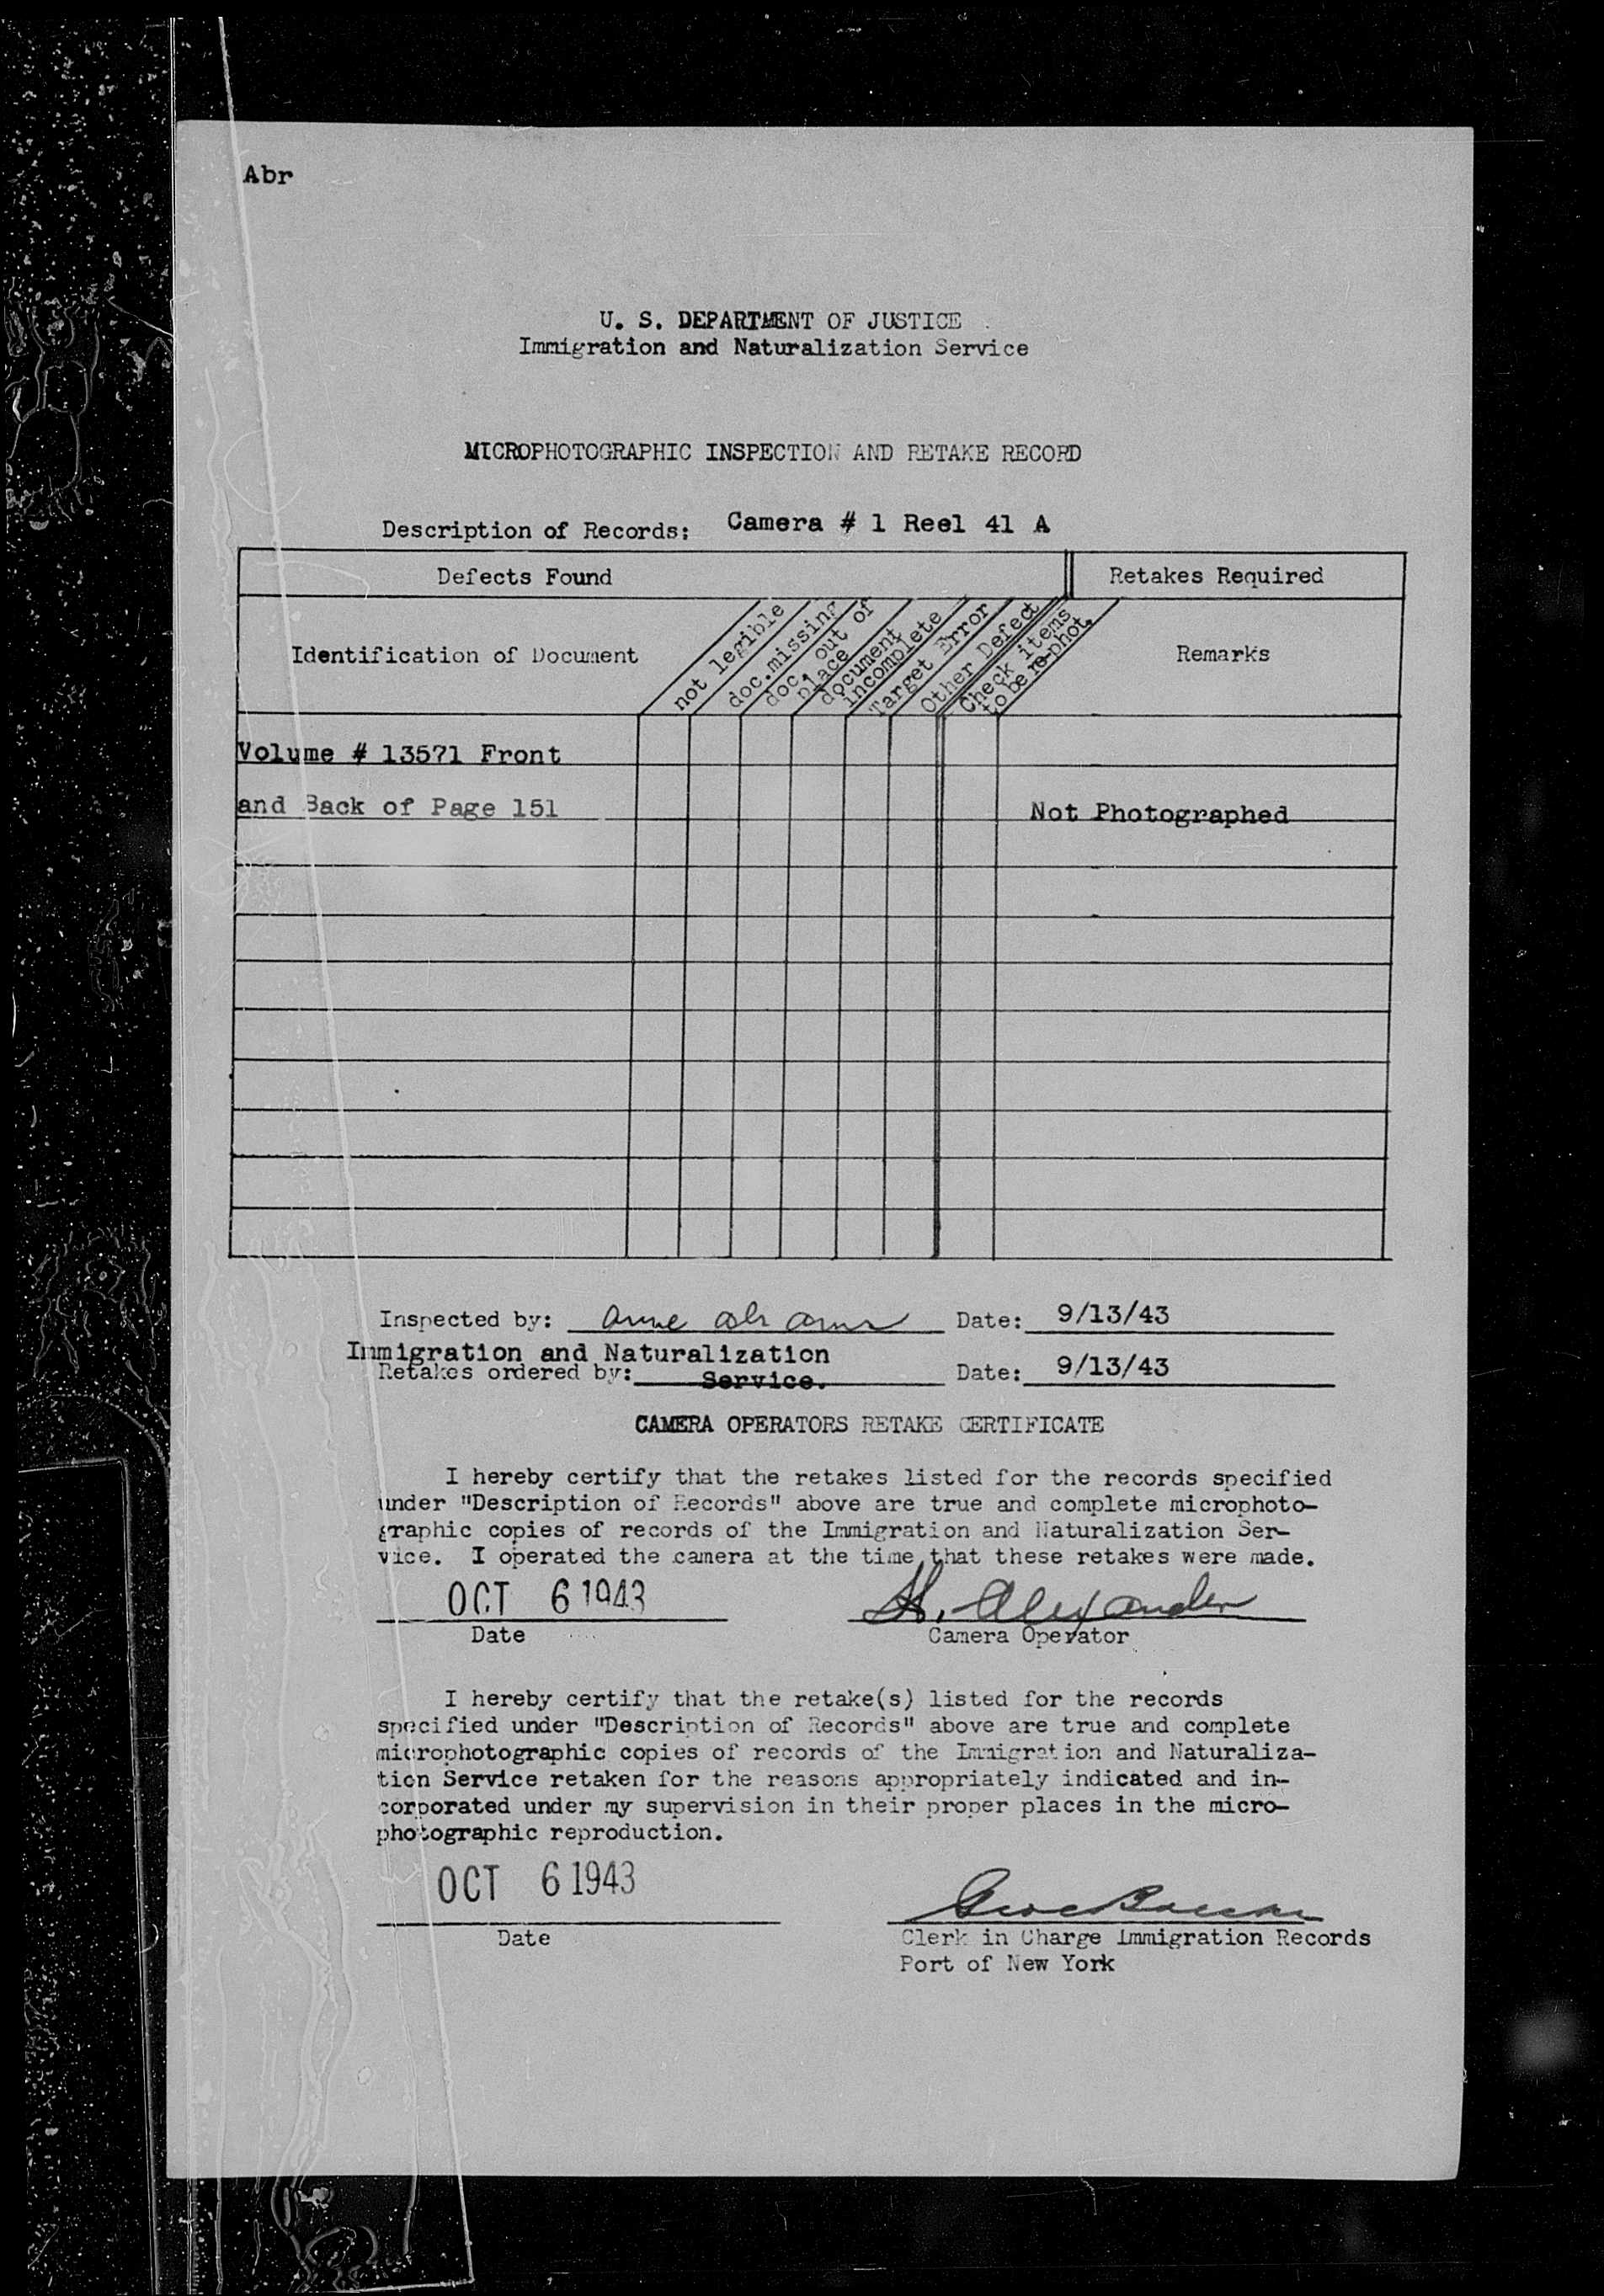 Abr
U. S. DEPARTMENT OF JUSTICE
Immigration and Naturalization Service
MICROPHOTOGRAPHIC INSPECTION AND RETAKE RECORD
Description of Records: Camera # 1 Reel 41 A
Defects Found
Retakes Required
Identification of Document
not legible
doc.missing
doc. out of
place
document
incomplete
Target Error
Other Defect
Check items
to be re-phot.
Remarks
Volume # 13571 Front
and Back of Page 151
Not Photographed
Inspected by: Anne Abrams Date: 9/13/43
Immigration and Naturalization
Retakes ordered by: Service. Date: 9/13/43
CAMERA OPERATORS RETAKE CERTIFICATE
I hereby certify that the retakes listed for the records specified
under "Description of Records" above are true and complete microphoto-
graphic copies of records of the Immigration and Naturalization Ser-
vice. I operated the camera at the time that these retakes were made.
OCT 6 1943 H. Alexander
Date Camera Operator
I hereby certify that the retake(s) listed for the records
specified under "Description of Records" above are true and complete
microphotographic copies of records of the Immigration and Naturaliza-
tion Service retaken for the reasons appropriately indicated and in-
corporated under my supervision in their proper places in the micro-
photographic reproduction.
OCT 6 1943
Date
Clerk in Charge Immigration Records
Port of New York